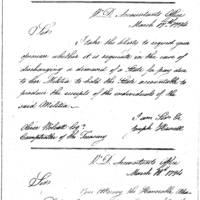 W.D. Accountants Office
March 17th 1794
Sir
I take the liberty to request your
opinion whether it is requisite in the case of
discharging a demand of a State for pay due
to her Militia to hold the State accountable to
produce the receipts of the individuals of the
said Militia.
I am Sir &c
Joseph Howell
Oliver Wolcott Esqr
Comptroller of the Treasury
W.D. Accountants Office
March 1794
Sir
the Honorable